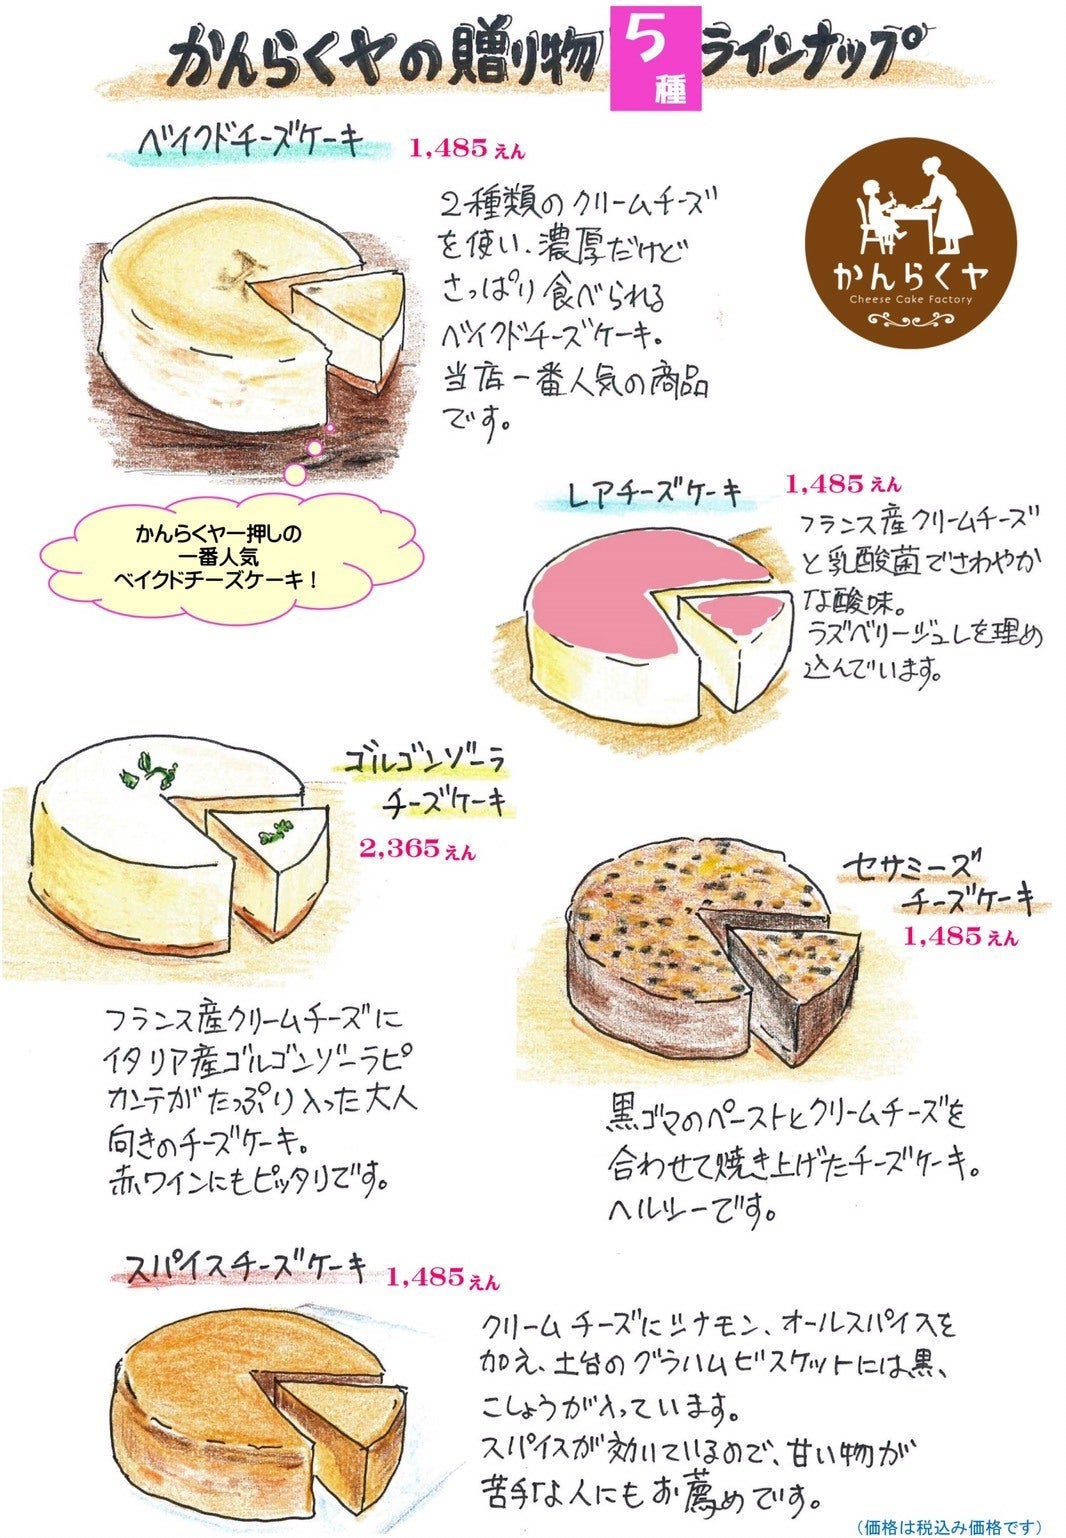 かんらくヤの贈り物5種ラインナップ
ベイクドチーズケーキ 1,485えん
2種類のクリームチーズ
を使い、濃厚だけど
さっぱり食べられる
ベイクドチーズケーキ。
当店一番人気の商品
です。
かんらくヤ
Cheese Cake Factory
かんらくヤ一押しの
一番人気
ベイクドチーズケーキ！
レアチーズケーキ 1,485えん
フランス産クリームチーズ
と乳酸菌でさわやか
な酸味。
ラズベリージュレを埋め
込んでいます。
ゴルゴンゾーラ
チーズケーキ
2,365えん
フランス産クリームチーズに
イタリア産ゴルゴンゾーラピ
カンテがたっぷり入った大人
向きのチーズケーキ。
赤ワインにもピッタリです。
セサミーズ
チーズケーキ
1,485えん
黒ゴマのペーストとクリームチーズを
合わせて焼き上げたチーズケーキ。
ヘルシーです。
スパイスチーズケーキ 1,485えん
クリームチーズにシナモン、オールスパイスを
加え、土台のグラハムビスケットには黒、
こしょうが入っています。
スパイスが効いているので、甘い物が
苦手な人にもお薦めです。
（価格は税込み価格です）